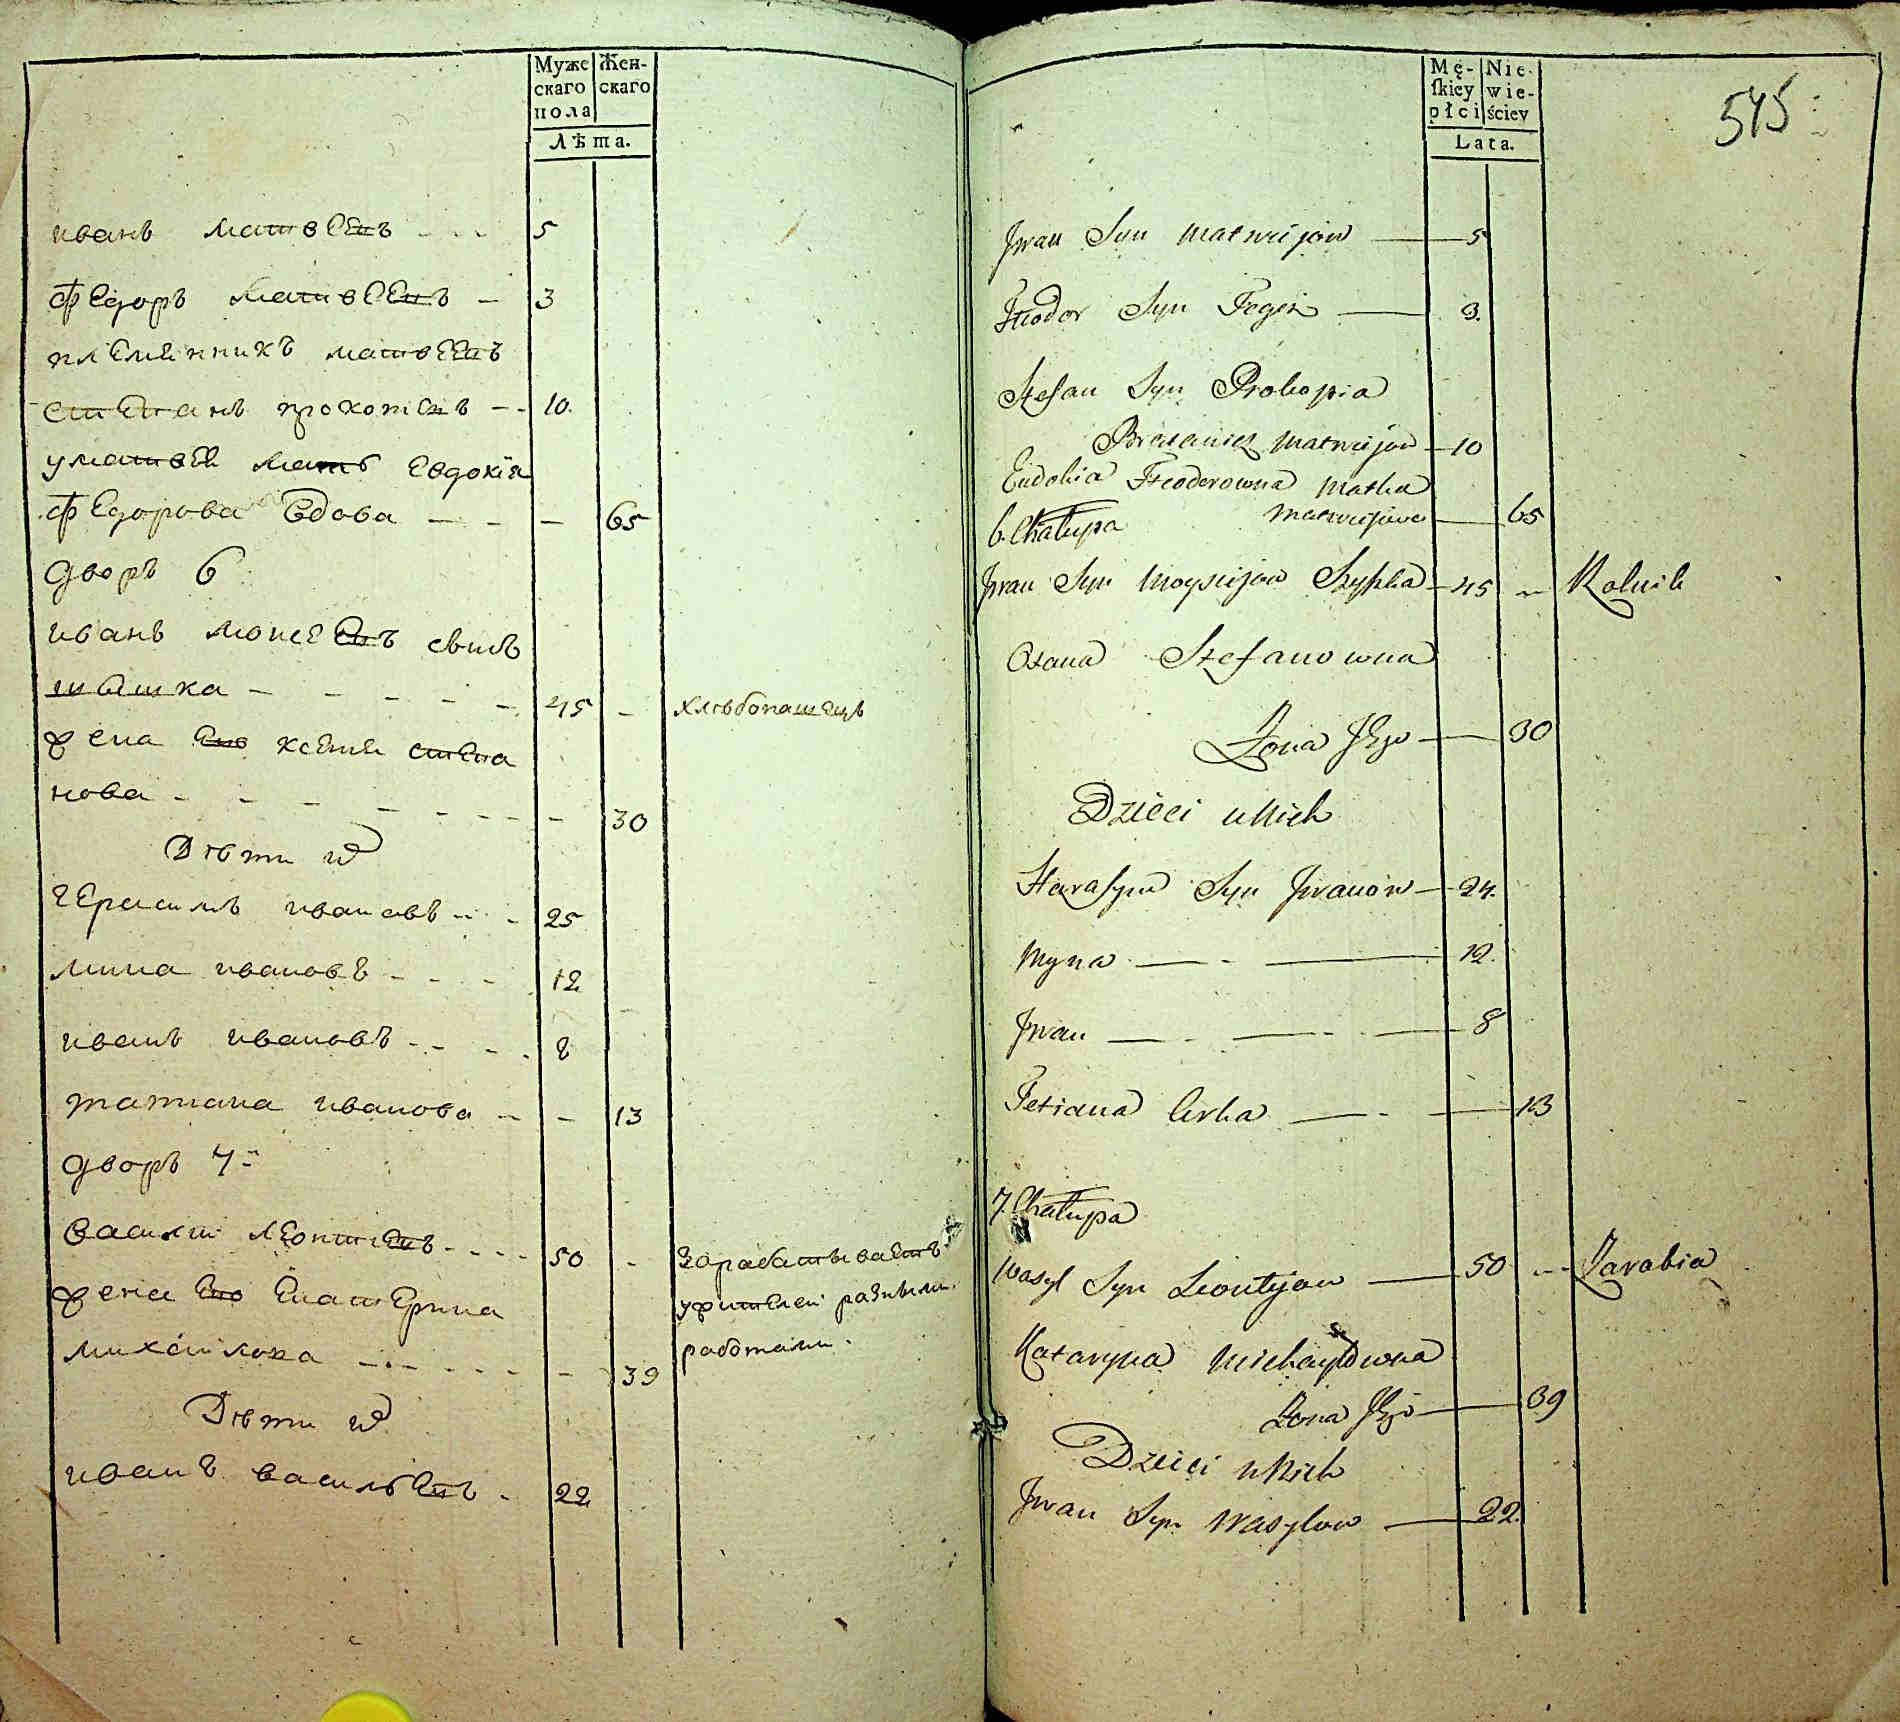 Муже Жен-
скаго скаго
пола
Лѣта.
иванъ матвеевъ - - - 5
федоръ матвеевъ - 3
племенникъ матвеевъ
степанъ прокопіевъ - - 10.
у матвея мать евдокія
федорова вдова - - - 65
дворъ 6
иванъ моисеевъ
- - - - - 45 - хлѣбопашецъ
жена его ксения степа
нова - - - - - - - - 30
Дѣти их
герасимъ ивановъ - - - 25
мина ивановъ - - - 12
иванъ ивановъ - - - - 8
татиана иванова - - - 13
дворъ 7й
василий леонтиевъ - - - - 50 - Зарабатываетъ
жена его екатерина у жителей разными
михайлова - - - - - - - 39 работами.
Дѣти их
иванъ васильевъ - 22
545
Mę- Nie-
ſkiey wie-
płci ściey
Lata.
Jwan Syn Matwijow — 5
Fteodor Syn Tegoż — 3.
Stefan Syn Prokopia
Brataniec Matwijow — 10
Eudokia Fteodorowna Matka
Matwijowa — 65
6. Chałupa
Jwan Syn Moysijow Szyszka — 45 - Rolnik
Oxana Stefanowna
Żona Jego — 30
Dzieci u Nich
Harasym Syn Jwanow — 24.
Myna — - — 12.
Jwan — - — - — 8
Tetiana Corka — - — 13
7. Chałupa
Wasyl Syn Leontijow — 50 - - Zarabia
Kataryna Michayłowna
Żona Jego — 39
Dzieci u Nich
Jwan Syn Wasylow — 22.